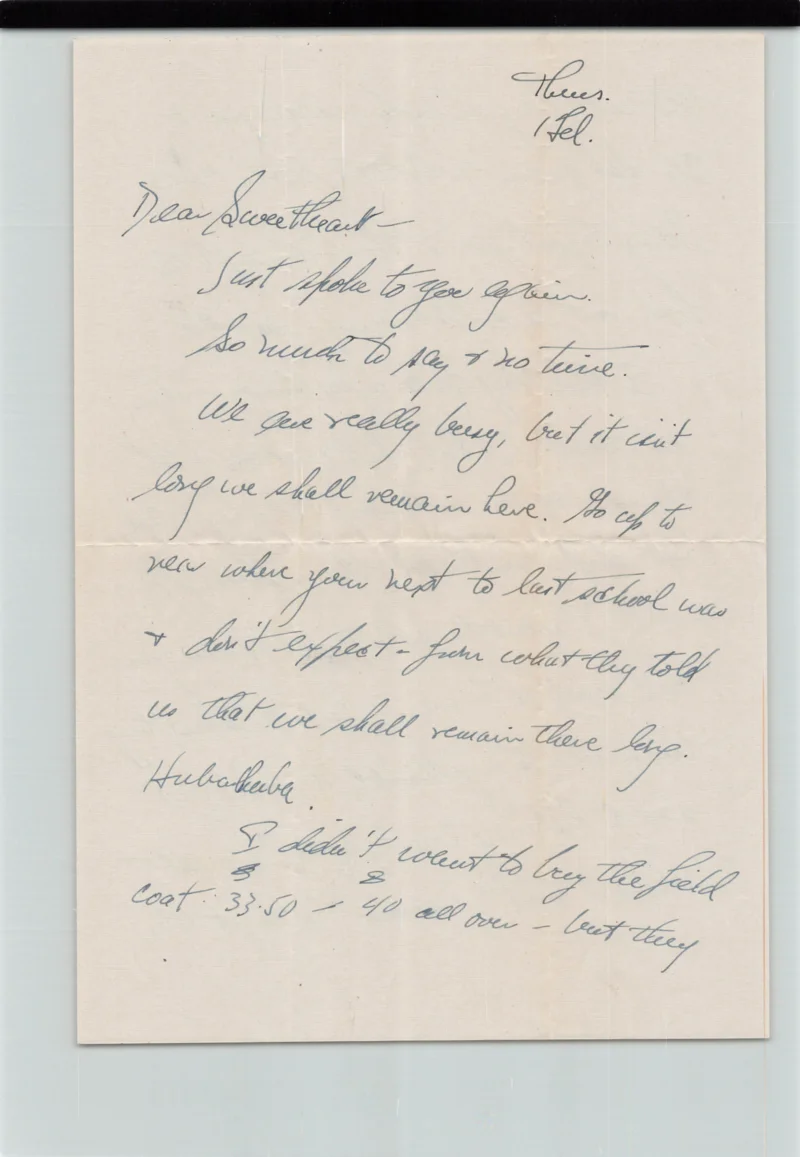 Thurs.
1 Feb.
Dear Sweetheart —
Just spoke to you again.
So much to say & no time.
We are really busy, but it isn't
long we shall remain here. Go up to
near where your next to last school was
& don't expect - from what they told
us that we shall remain there long.
Hubahuba.
I didn't want to buy the field
coat. $33.50 — $40 all over — but they